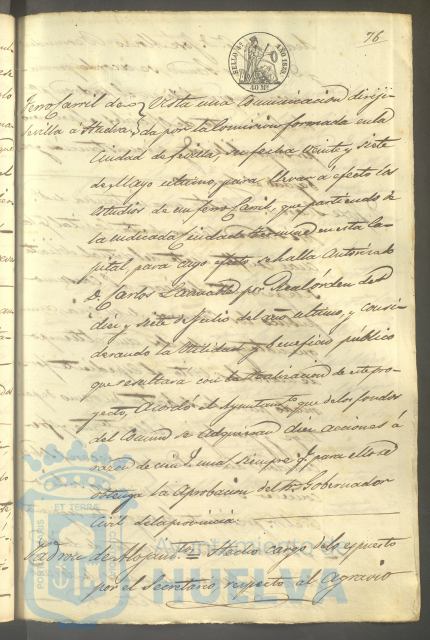 76
SELLO 4º AÑO 1859.
40 Ms.
Ferro Carril de Vista una Comunicacion diriji-
Sevilla á Huelva da por la Comision formada en la
Ciudad de Sevilla, su fecha veinte y siete
de Mayo ultimo, para llevar á efecto los
estudios de un ferro Carril, que partiendo de
la indicada Ciudad termine en esta Ca-
pital, para cuyo efecto se halla Autorizado
D. Carlos por Real órden de
diez y siete de Julio del año ultimo, y consi-
derando la utilidad y beneficio público
que resultará con la realizacion de este pro-
yecto, Acordó el Ayuntamto que de los fondos
del Comun se adquieran diez acciones á
razon de una, siempre q. para ello se
obtenga la Aprobacion del Sr. Gobernador
Civil de la provincia.
Padron de Alojamtos = Hecho cargo de lo espuesto
por el Secretario, respecto al Agravio
Ayuntamiento de
HUELVA